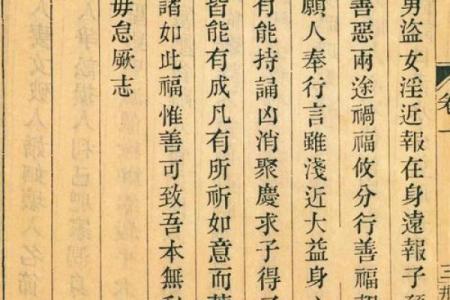 卷一
三
男盗女淫近報在身遠報子
善惡兩途禍福攸分行善福
願人奉行言雖淺近大益身
有能持誦凶消聚慶求子得
皆能有成凡有所祈如意而
諸如此福惟善可致吾本無
毋怠厥志